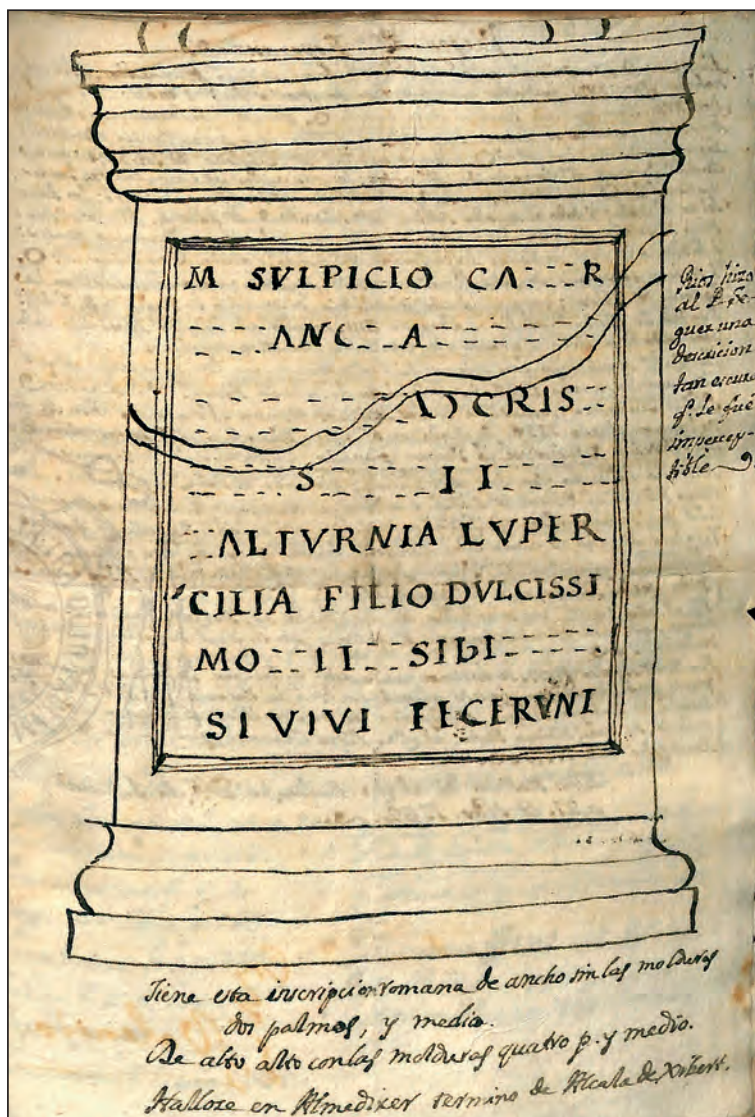 M SVLPICIO CA---R
---ANC--A---
---ACRIS
---S---II---
--ALTVRNIA LVPER
CILIA FILIO DVLCISSI
MO--II--SIBI----
SI VIVI FECERVNI
Rios hizo
al P.
guer una
descricion
tan escura
q. le fue
impercep-
tible
Tiene esta inscripcion romana de ancho sin las molduras
dos palmos, y medio.
De alto alto con las molduras quatro p. y medio.
Halloze en Almedixer termino de Alcala de Xibert.